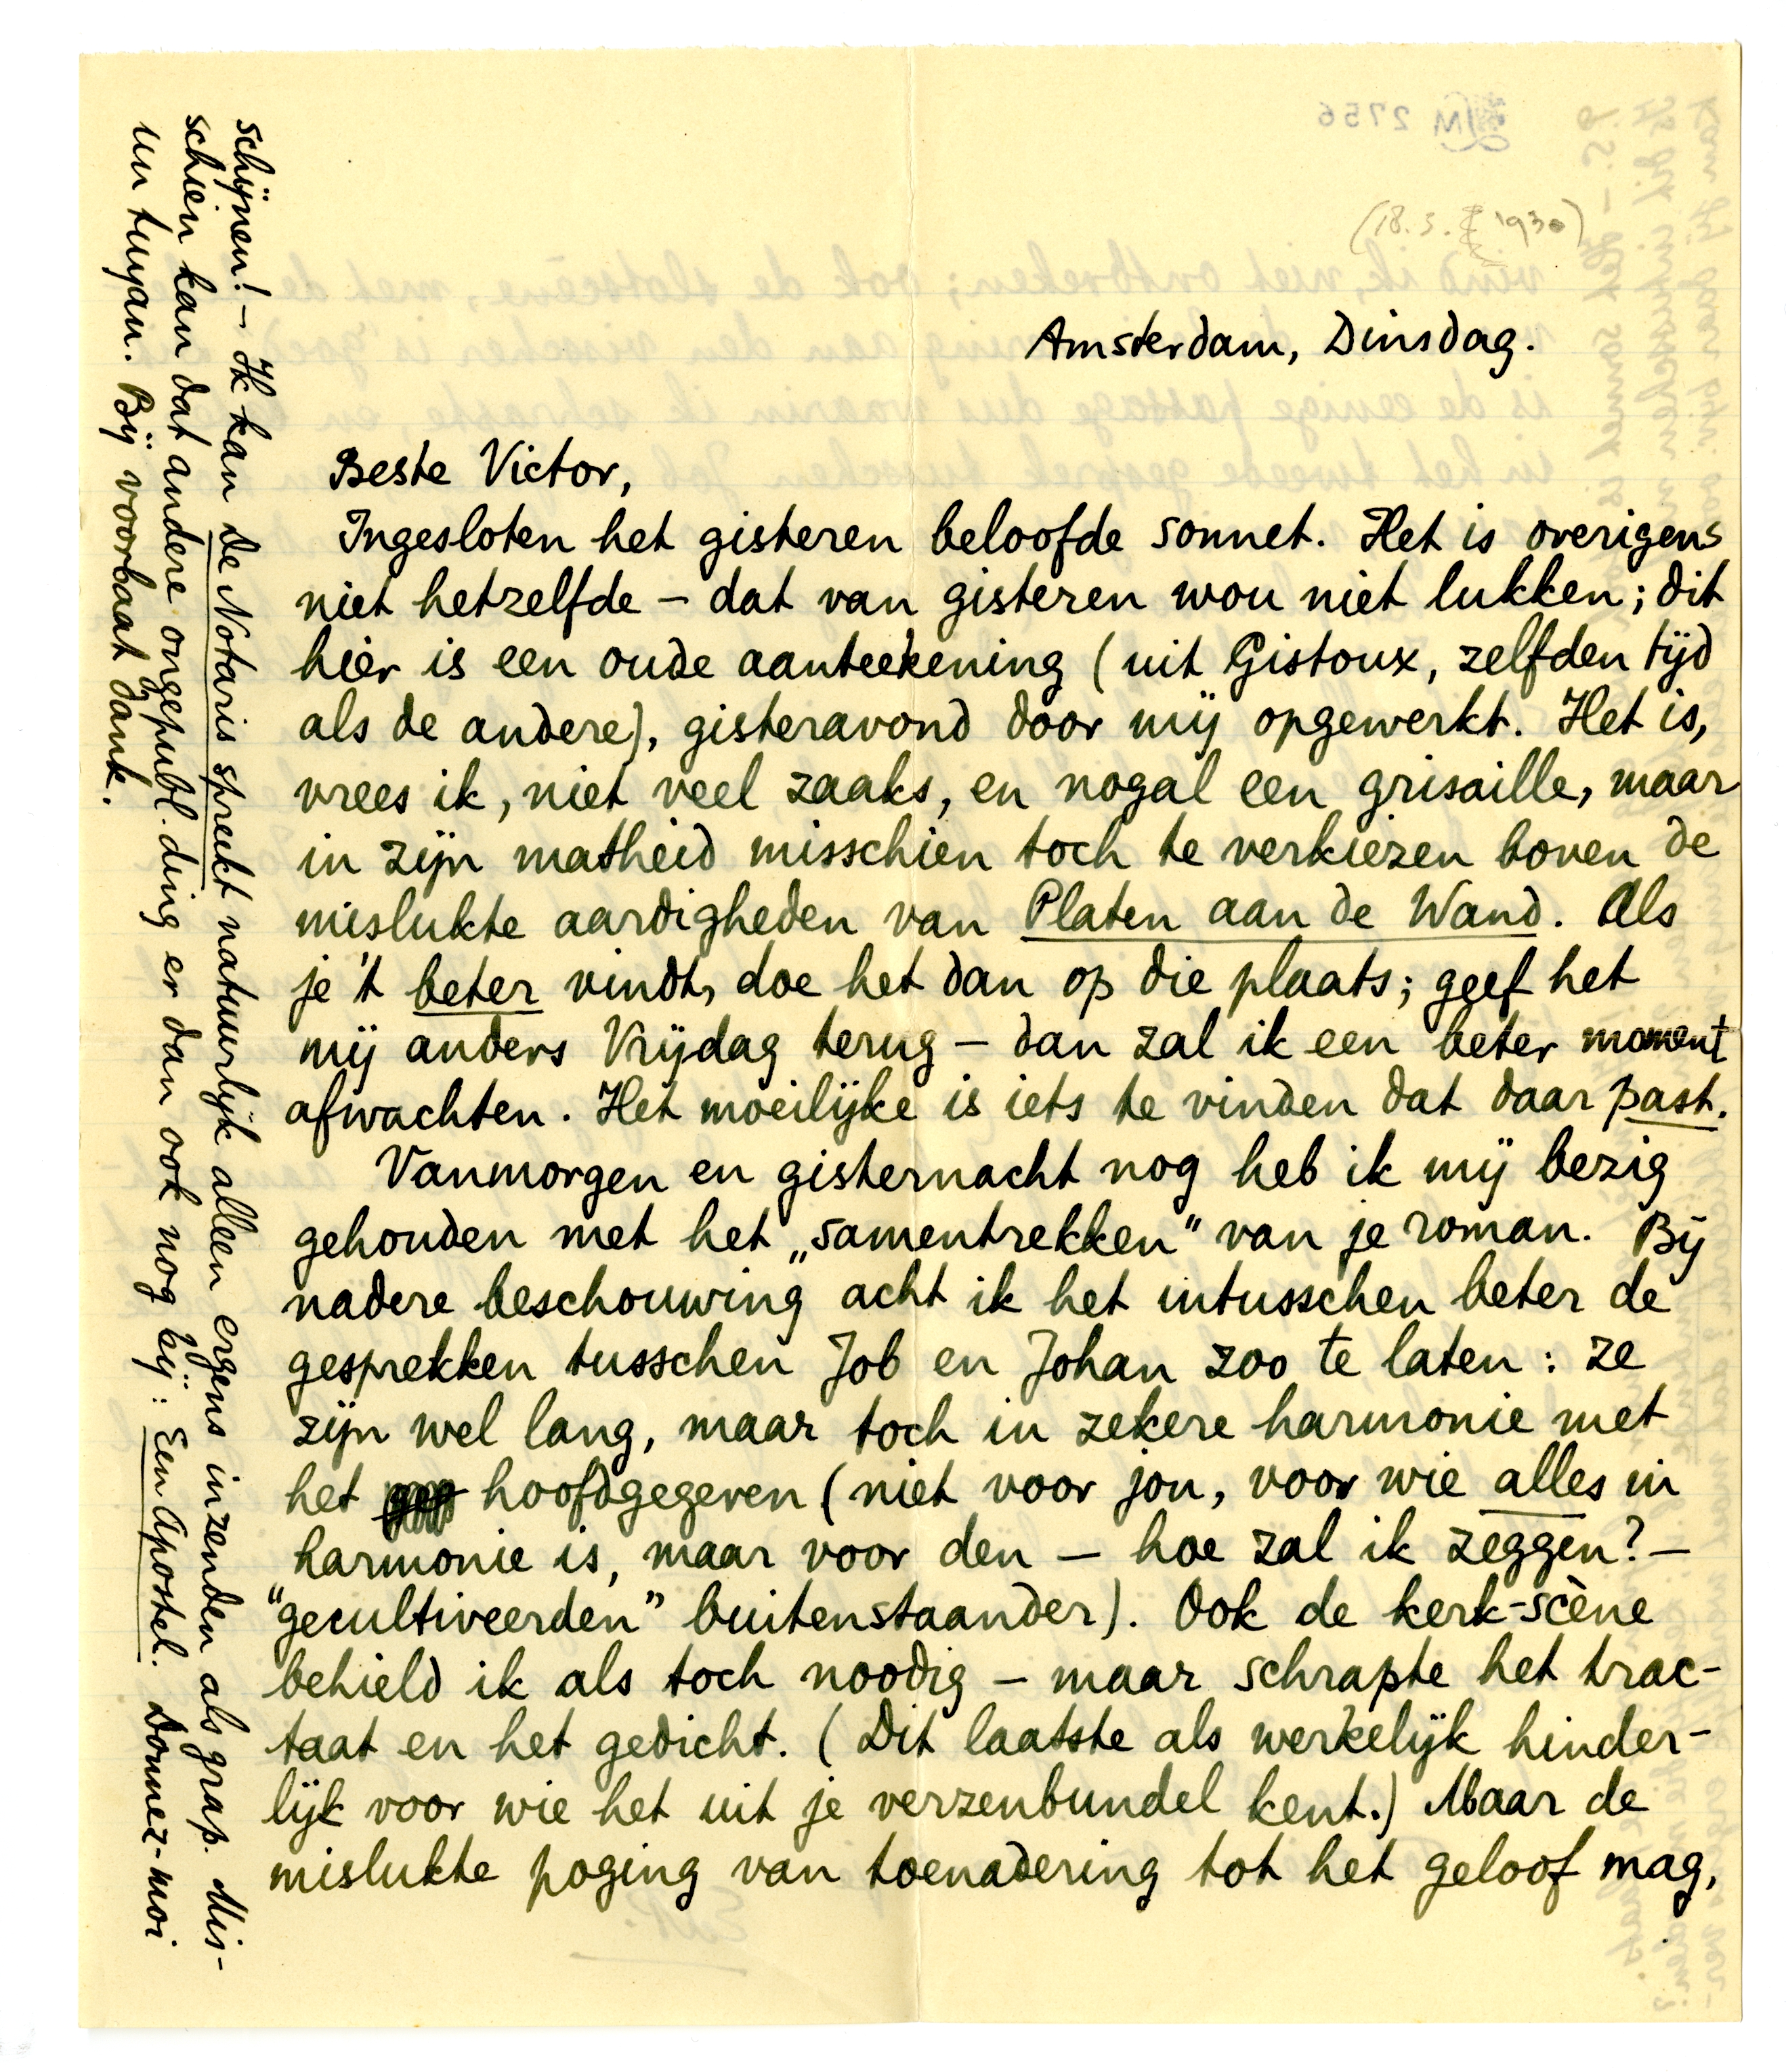 (18.3.1930)
Amsterdam, Dinsdag.
Beste Victor,
Ingesloten het gisteren beloofde sonnet. Het is overigens
niet hetzelfde – dat van gisteren wou niet lukken; dit
hier is een oude aanteekening (uit Gistoux, zelfden tijd
als de andere), gisteravond door mij opgewerkt. Het is,
vrees ik, niet veel zaaks, en nogal een grisaille, maar
in zijn matheid misschien toch te verkiezen boven de
mislukte aardigheden van Platen aan de Wand. Als
je 't beter vindt, doe het dan op die plaats; geef het
mij anders Vrijdag terug – dan zal ik een beter moment
afwachten. Het moeilijke is iets te vinden dat daar past.
Vanmorgen en gisternacht nog heb ik mij bezig
gehouden met het „samentrekken" van je roman. Bij
nadere beschouwing acht ik het intusschen beter de
gesprekken tusschen Job en Johan zoo te laten: ze
zijn wel lang, maar toch in zekere harmonie met
het hoofdgegeven (niet voor jou, voor wie alles in
harmonie is, maar voor den – hoe zal ik zeggen? –
"gecultiveerden" buitenstaander). Ook de kerk-scène
behield ik als toch noodig – maar schrapte het trac-
taat en het gedicht. (Dit laatste als werkelijk hinder-
lijk voor wie het uit je verzenbundel kent.) Maar de
mislukte poging van toenadering tot het geloof mag,
schijnen! – Ik kan De Notaris spreekt natuurlijk alleen ergens inzenden als grap. Mis-
schien kan dat andere ongepubl. ding er dan ook nog bij: Een Apostel. Donnez-moi
un tuyau. Bij voorbaat dank.